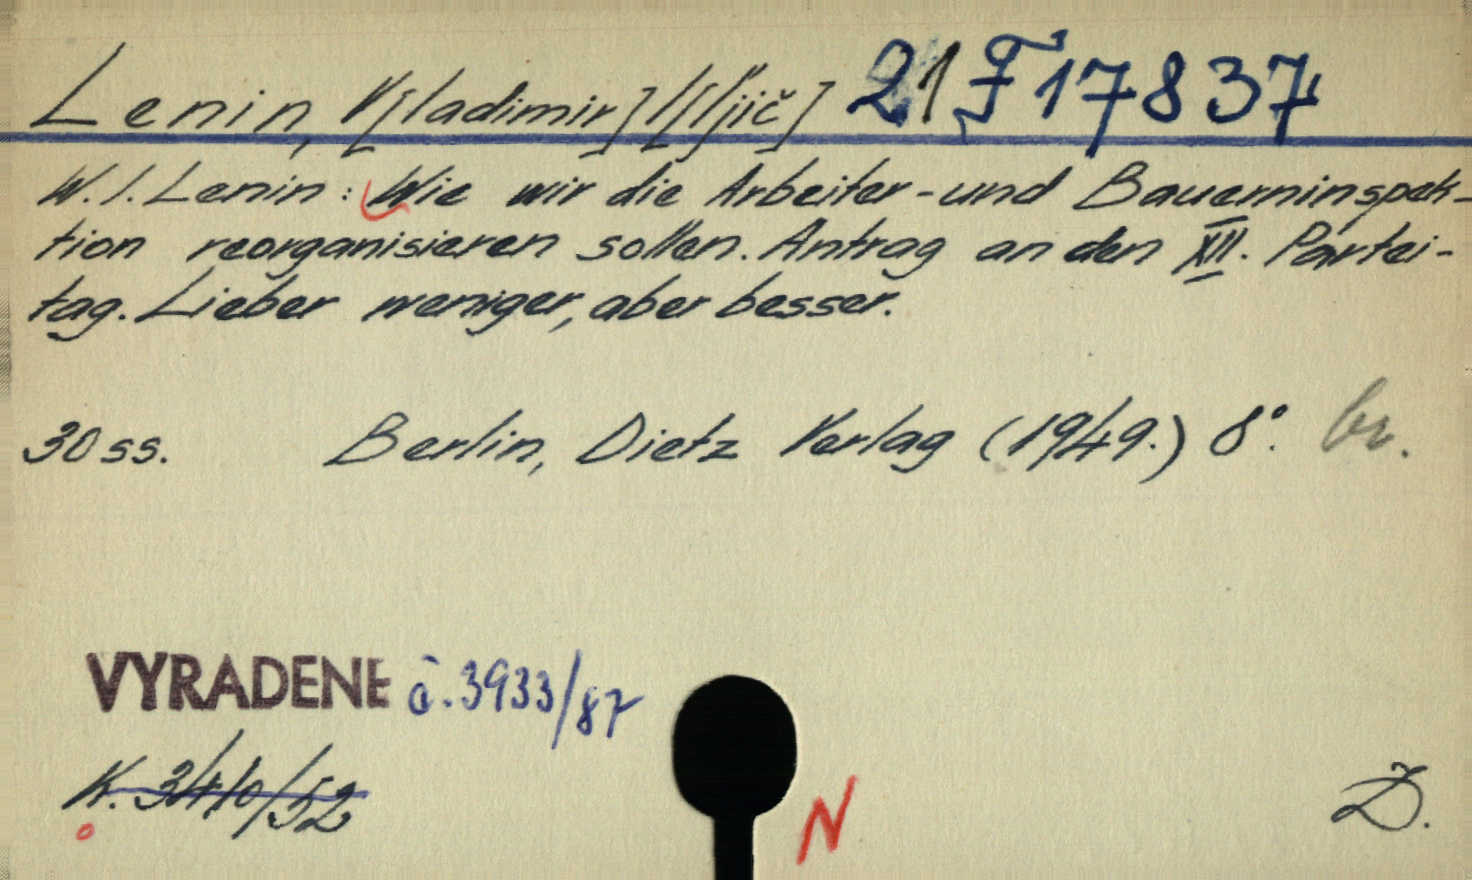 Lenin, V[ladimir] I[ljič] 21 F 17837
W. I. Lenin: Wie wir die Arbeiter- und Bauerninspek-
tion reorganisieren sollen. Antrag an den XII. Partei-
tag. Lieber weniger, aber besser.
30 ss. Berlin, Dietz Verlag (1949.) 8°. br.
VYRADENÉ č. 3933/87
K. 3410/52
N
Ž.